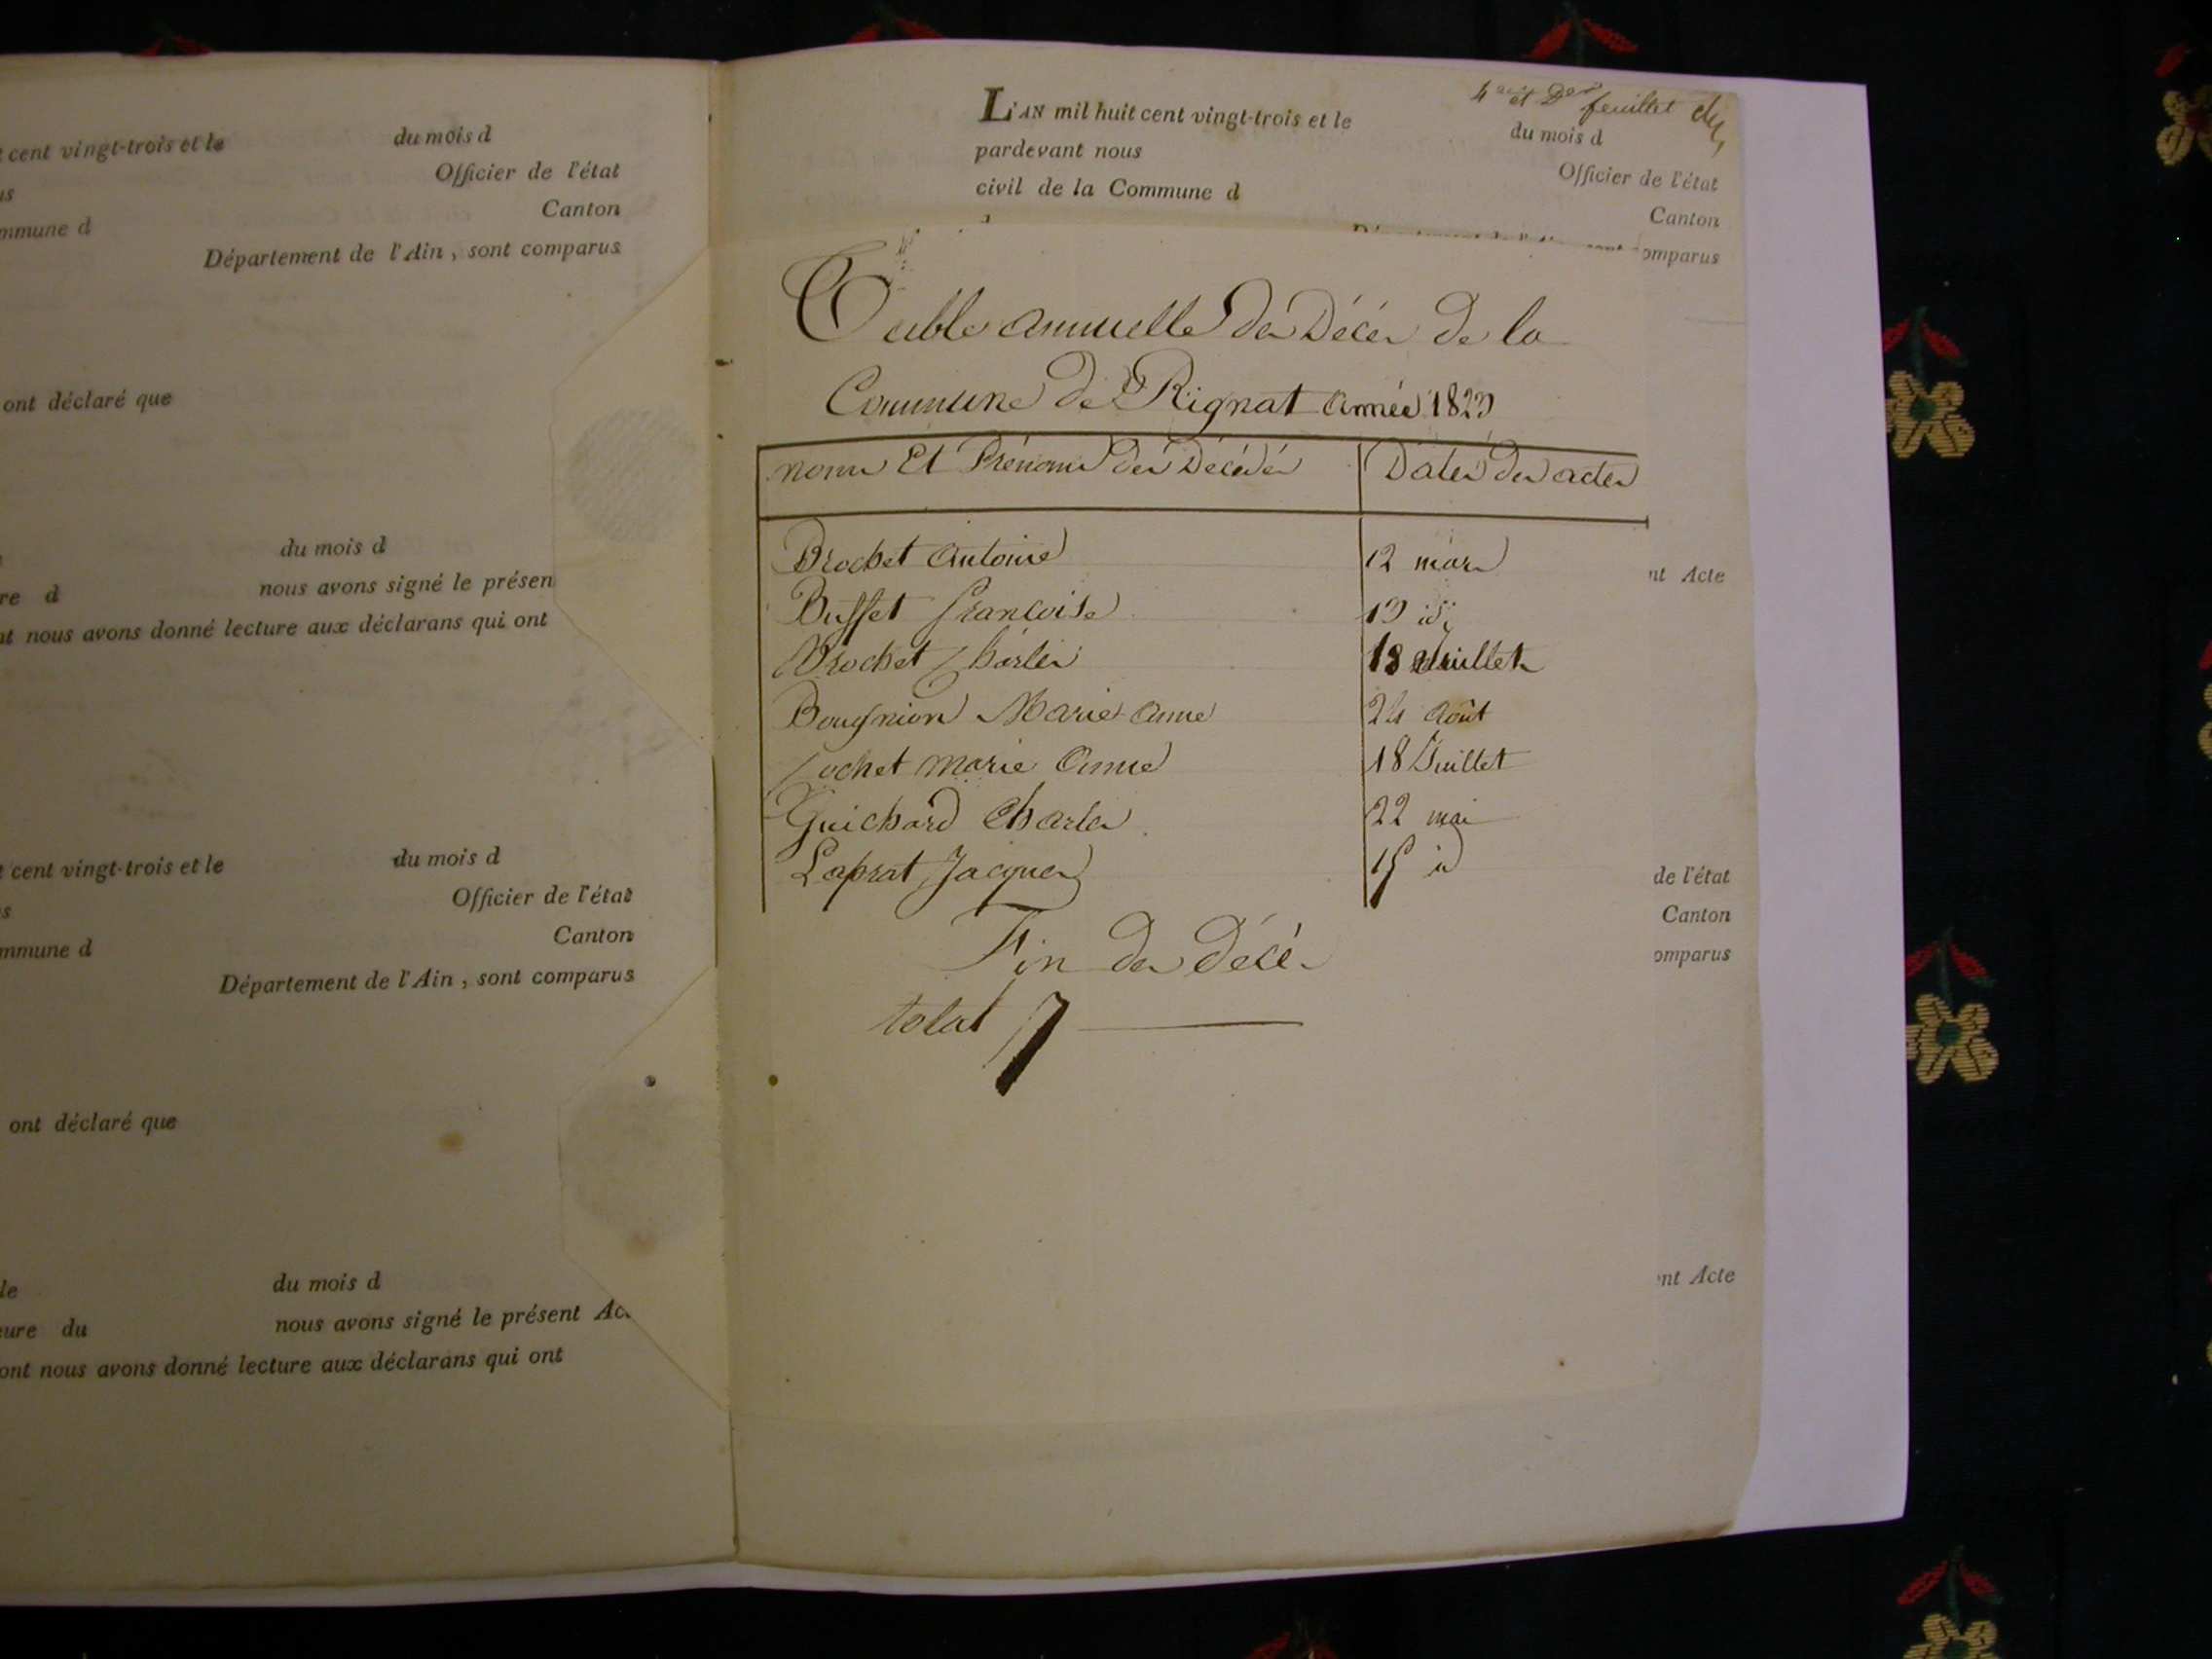 cent vingt-trois et le du mois d
Officier de l'état
mmune d Canton
Département de l'Ain, sont comparus
ont déclaré que
du mois d
re d nous avons signé le présen
nt nous avons donné lecture aux déclarans qui ont
cent vingt-trois et le du mois d
Officier de l'état
mmune d Canton
Département de l'Ain, sont comparus
ont déclaré que
le du mois d
eure du nous avons signé le présent Ac
ont nous avons donné lecture aux déclarans qui ont
4 et Der feuillet
L'AN mil huit cent vingt-trois et le du mois d
pardevant nous Officier de l'état
civil de la Commune d Canton
omparus
Table annuelle des Décès de la
Commune de Rignat année 1823
noms Et Prénoms des Décédés Dates des actes
Brochet Antoine 12 mars
Buffet francoise 13 id
Brochet Charles 18 Juillet
Bougnion Marie Anne 24 Août
Cochet marie Anne 18 Juillet
Guichard Charles 22 mai
Laprat Jacques 15 id
Fin des décès
total 7
nt Acte
de l'état
Canton
omparus
nt Acte